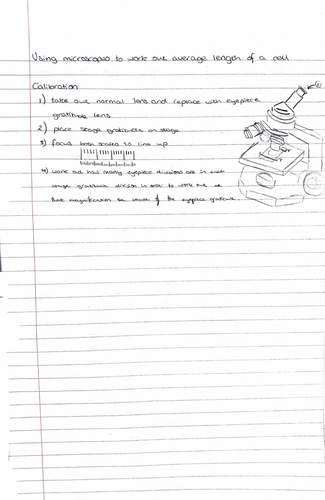 Using microscopes to work out average length of a cell
Calibration
1) take out normal lens and replace with eyepiece
gratitude lens
2) place stage graticule on stage
3) focus both scales to line up
4) work out how many eyepiece divisions are in each
stage graticule division in order to work out at
that magnification the of the eyepiece graticule
1